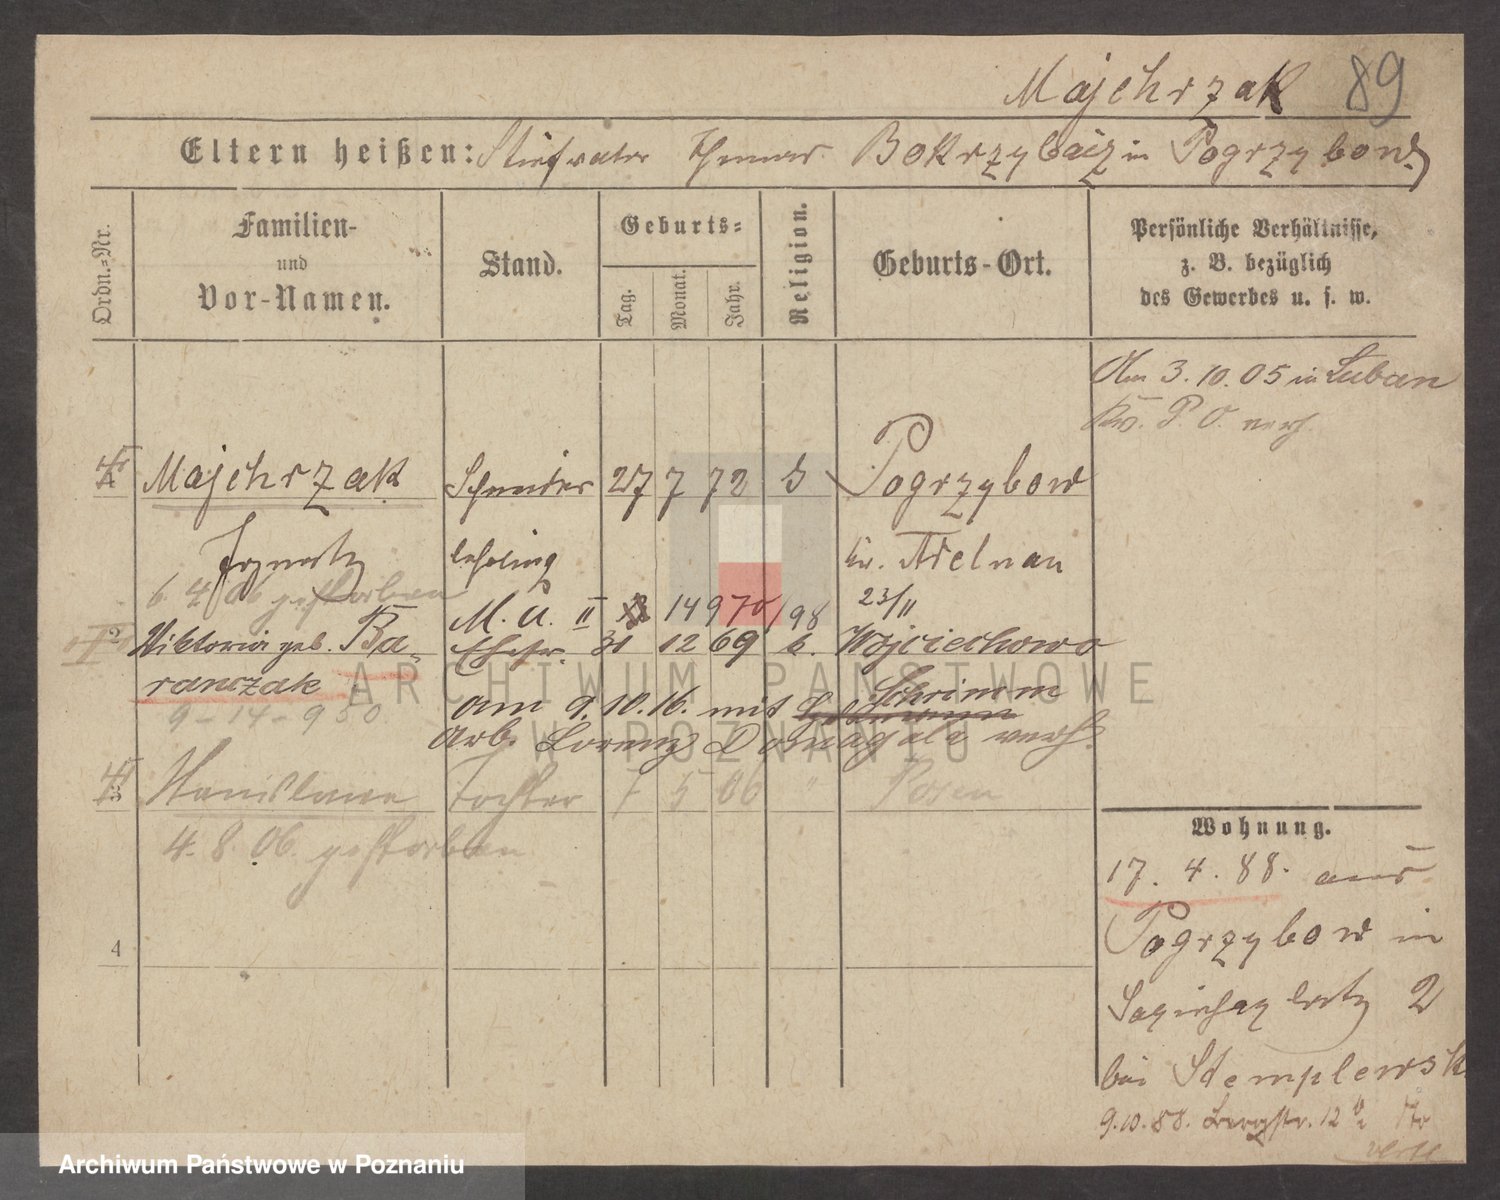 Majchrzak 89
Eltern heißen: Stiefvater Thomas Bokrzybaiz in Pogrzybow
Ordn.-Nr.
Familien-
und
Vor-Namen.
Stand.
Geburts-
Tag.
Monat.
Jahr.
Religion.
Geburts-Ort.
Persönliche Verhältnisse,
z. B. bezüglich
des Gewerbes u. s. w.
Am 3. 10. 05 in Luban
Kr. P. O. verh.
Majchrzak Schneider 27 7 72 Pogrzybow
Ignatz lehrling Kr. Adelnau
6. 4. 06 gestorben
M. U. II 14970/98 23/11
2 Viktoria geb. Ba- Ehefr. 31 12 69 k. Wojciechowo
ranczak Schrimm
9-14-950
am 9. 10. 16. mit
Arb. Lorenz Domagala verh.
3 Stanislawa Tochter 7 5 06 " Posen
4. 8. 06. gestorben
4
Wohnung.
17. 4. 88. aus
Pogrzybow in
Sapiehaplatz 2
bei Stemplewsk
9. 10. 88. Bergstr. 12
ARCHIWUM PAŃSTWOWE
W POZNANIU
Archiwum Państwowe w Poznaniu